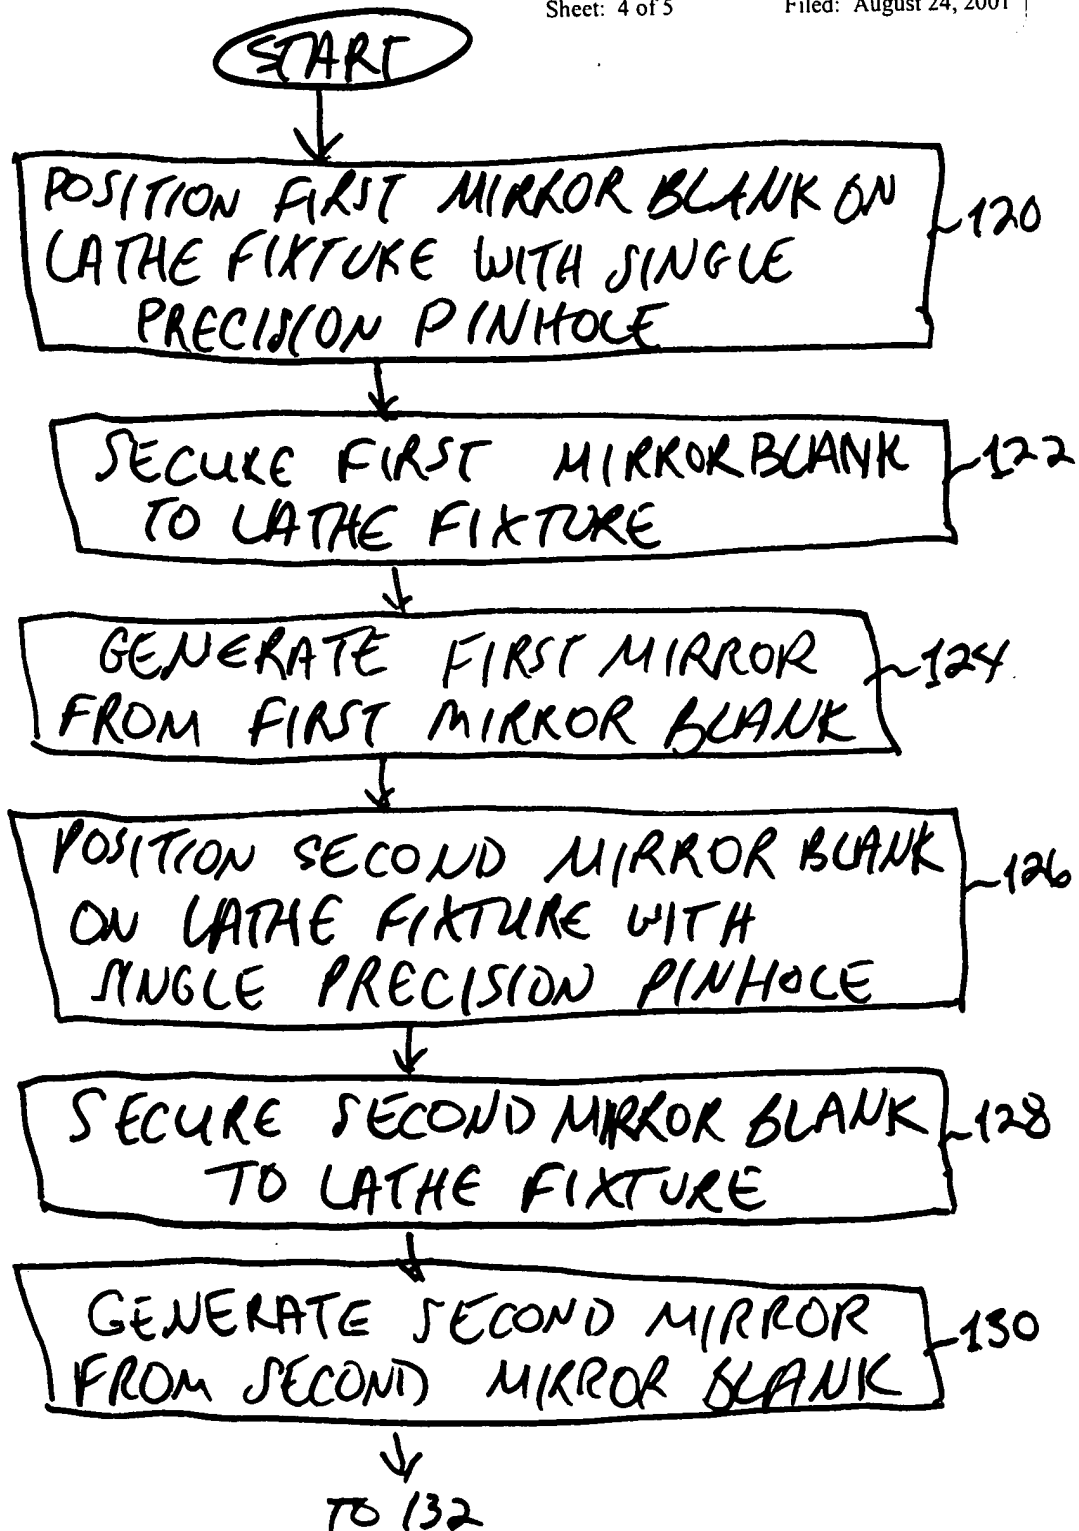 Sheet: 4 of 5 Filed: August 24, 2001
START
POSITION FIRST MIRROR BLANK ON
LATHE FIXTURE WITH SINGLE
PRECISION PINHOLE
120
SECURE FIRST MIRROR BLANK
TO LATHE FIXTURE
122
GENERATE FIRST MIRROR
FROM FIRST MIRROR BLANK
124
POSITION SECOND MIRROR BLANK
ON LATHE FIXTURE WITH
SINGLE PRECISION PINHOLE
126
SECURE SECOND MIRROR BLANK
TO LATHE FIXTURE
128
GENERATE SECOND MIRROR
FROM SECOND MIRROR BLANK
130
TO 132